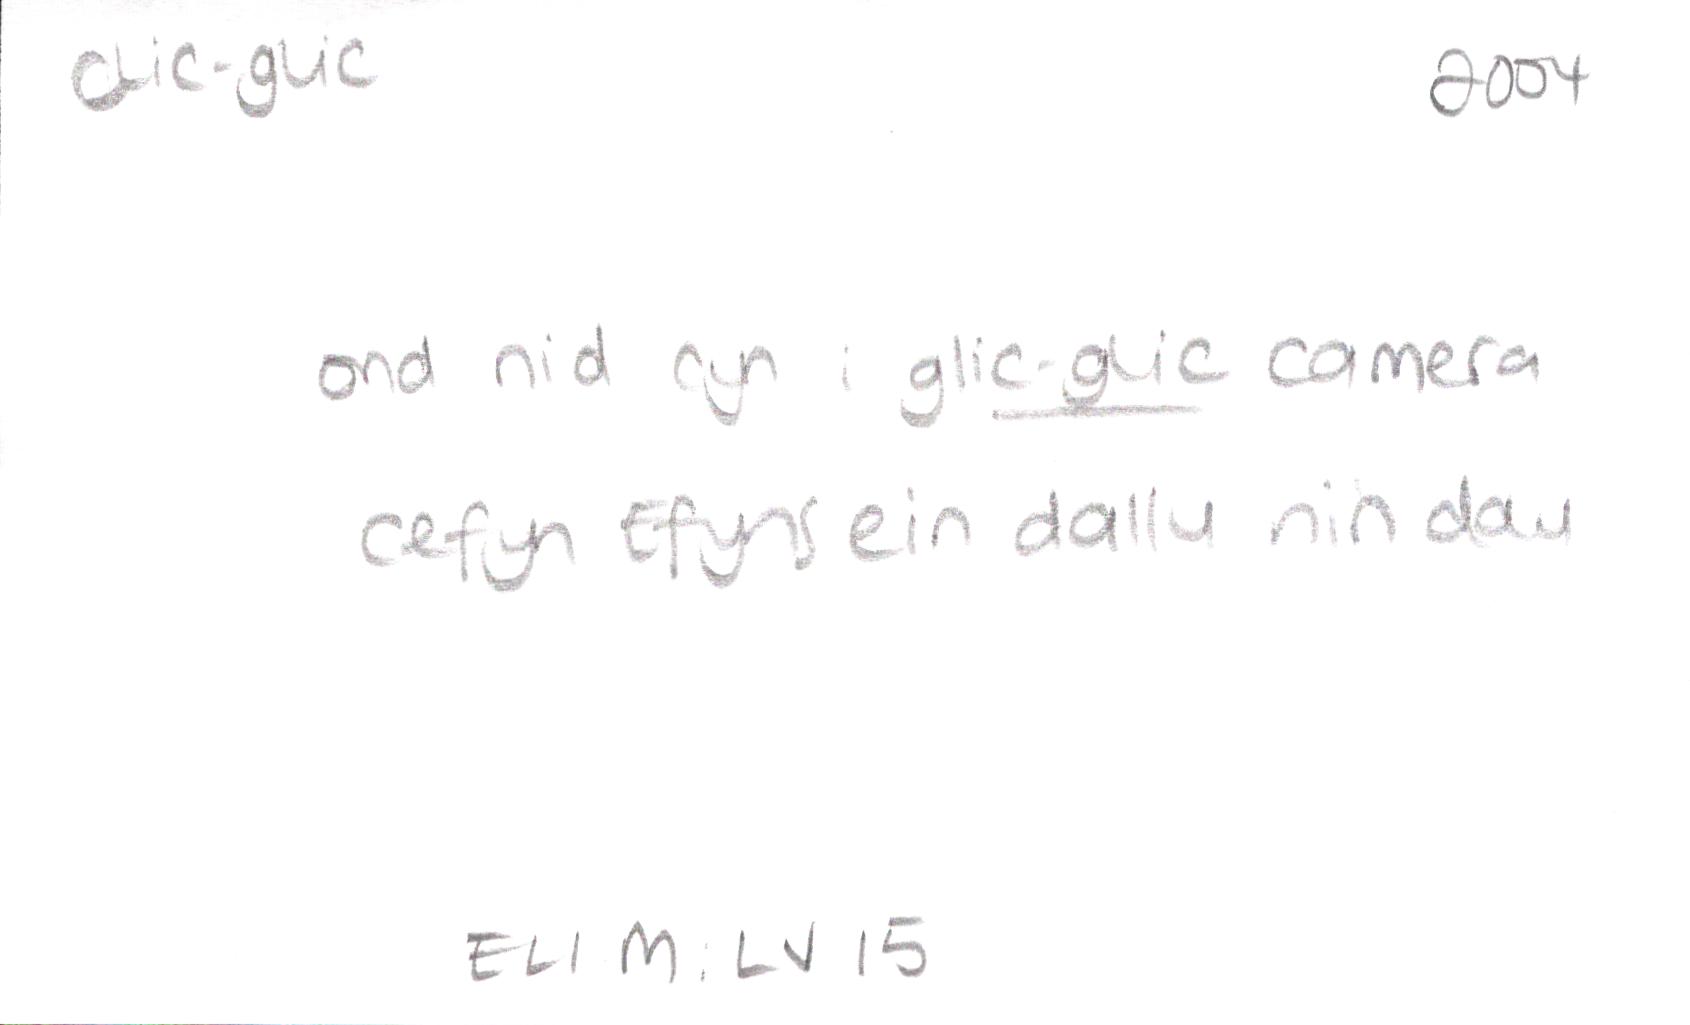 clic-glic 2004
ond nid cyn i glic-glic camera
cefyn Efyns ein dallu nin dau
ELIM: LV 15